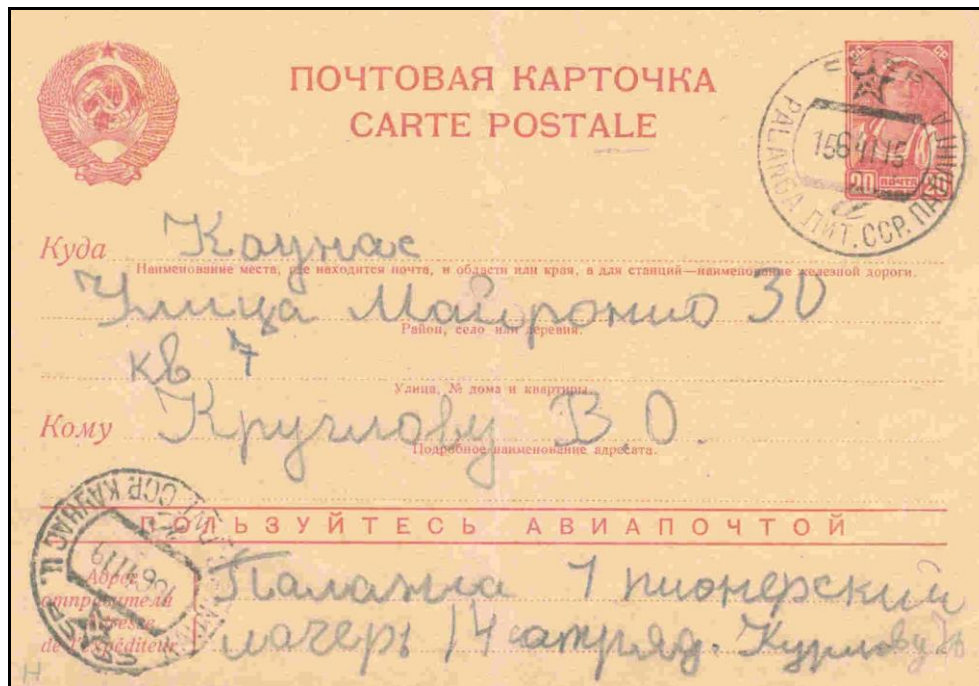 ПОЧТОВАЯ КАРТОЧКА
CARTE POSTALE
СССР
PALANGA ЛИТ. ССР. ПАЛАНГА
15641 15
20 ПОЧТА 20
Куда Каунас
Наименование места, где находится почта, и области или края, а для станций—наименование железной дороги.
Улица Майронио 30
Район, село или деревня.
кв 7
Улица, № дома и квартиры.
Кому Круглову В.О.
Подробное наименование адресата.
ПОЛЬЗУЙТЕСЬ АВИАПОЧТОЙ
ЛИТ. ССР КАУНАС Ц.
Адрес отправителя
Adresse de l'expéditeur
Паланга 1 пионерский
лагерь 14 отряд.